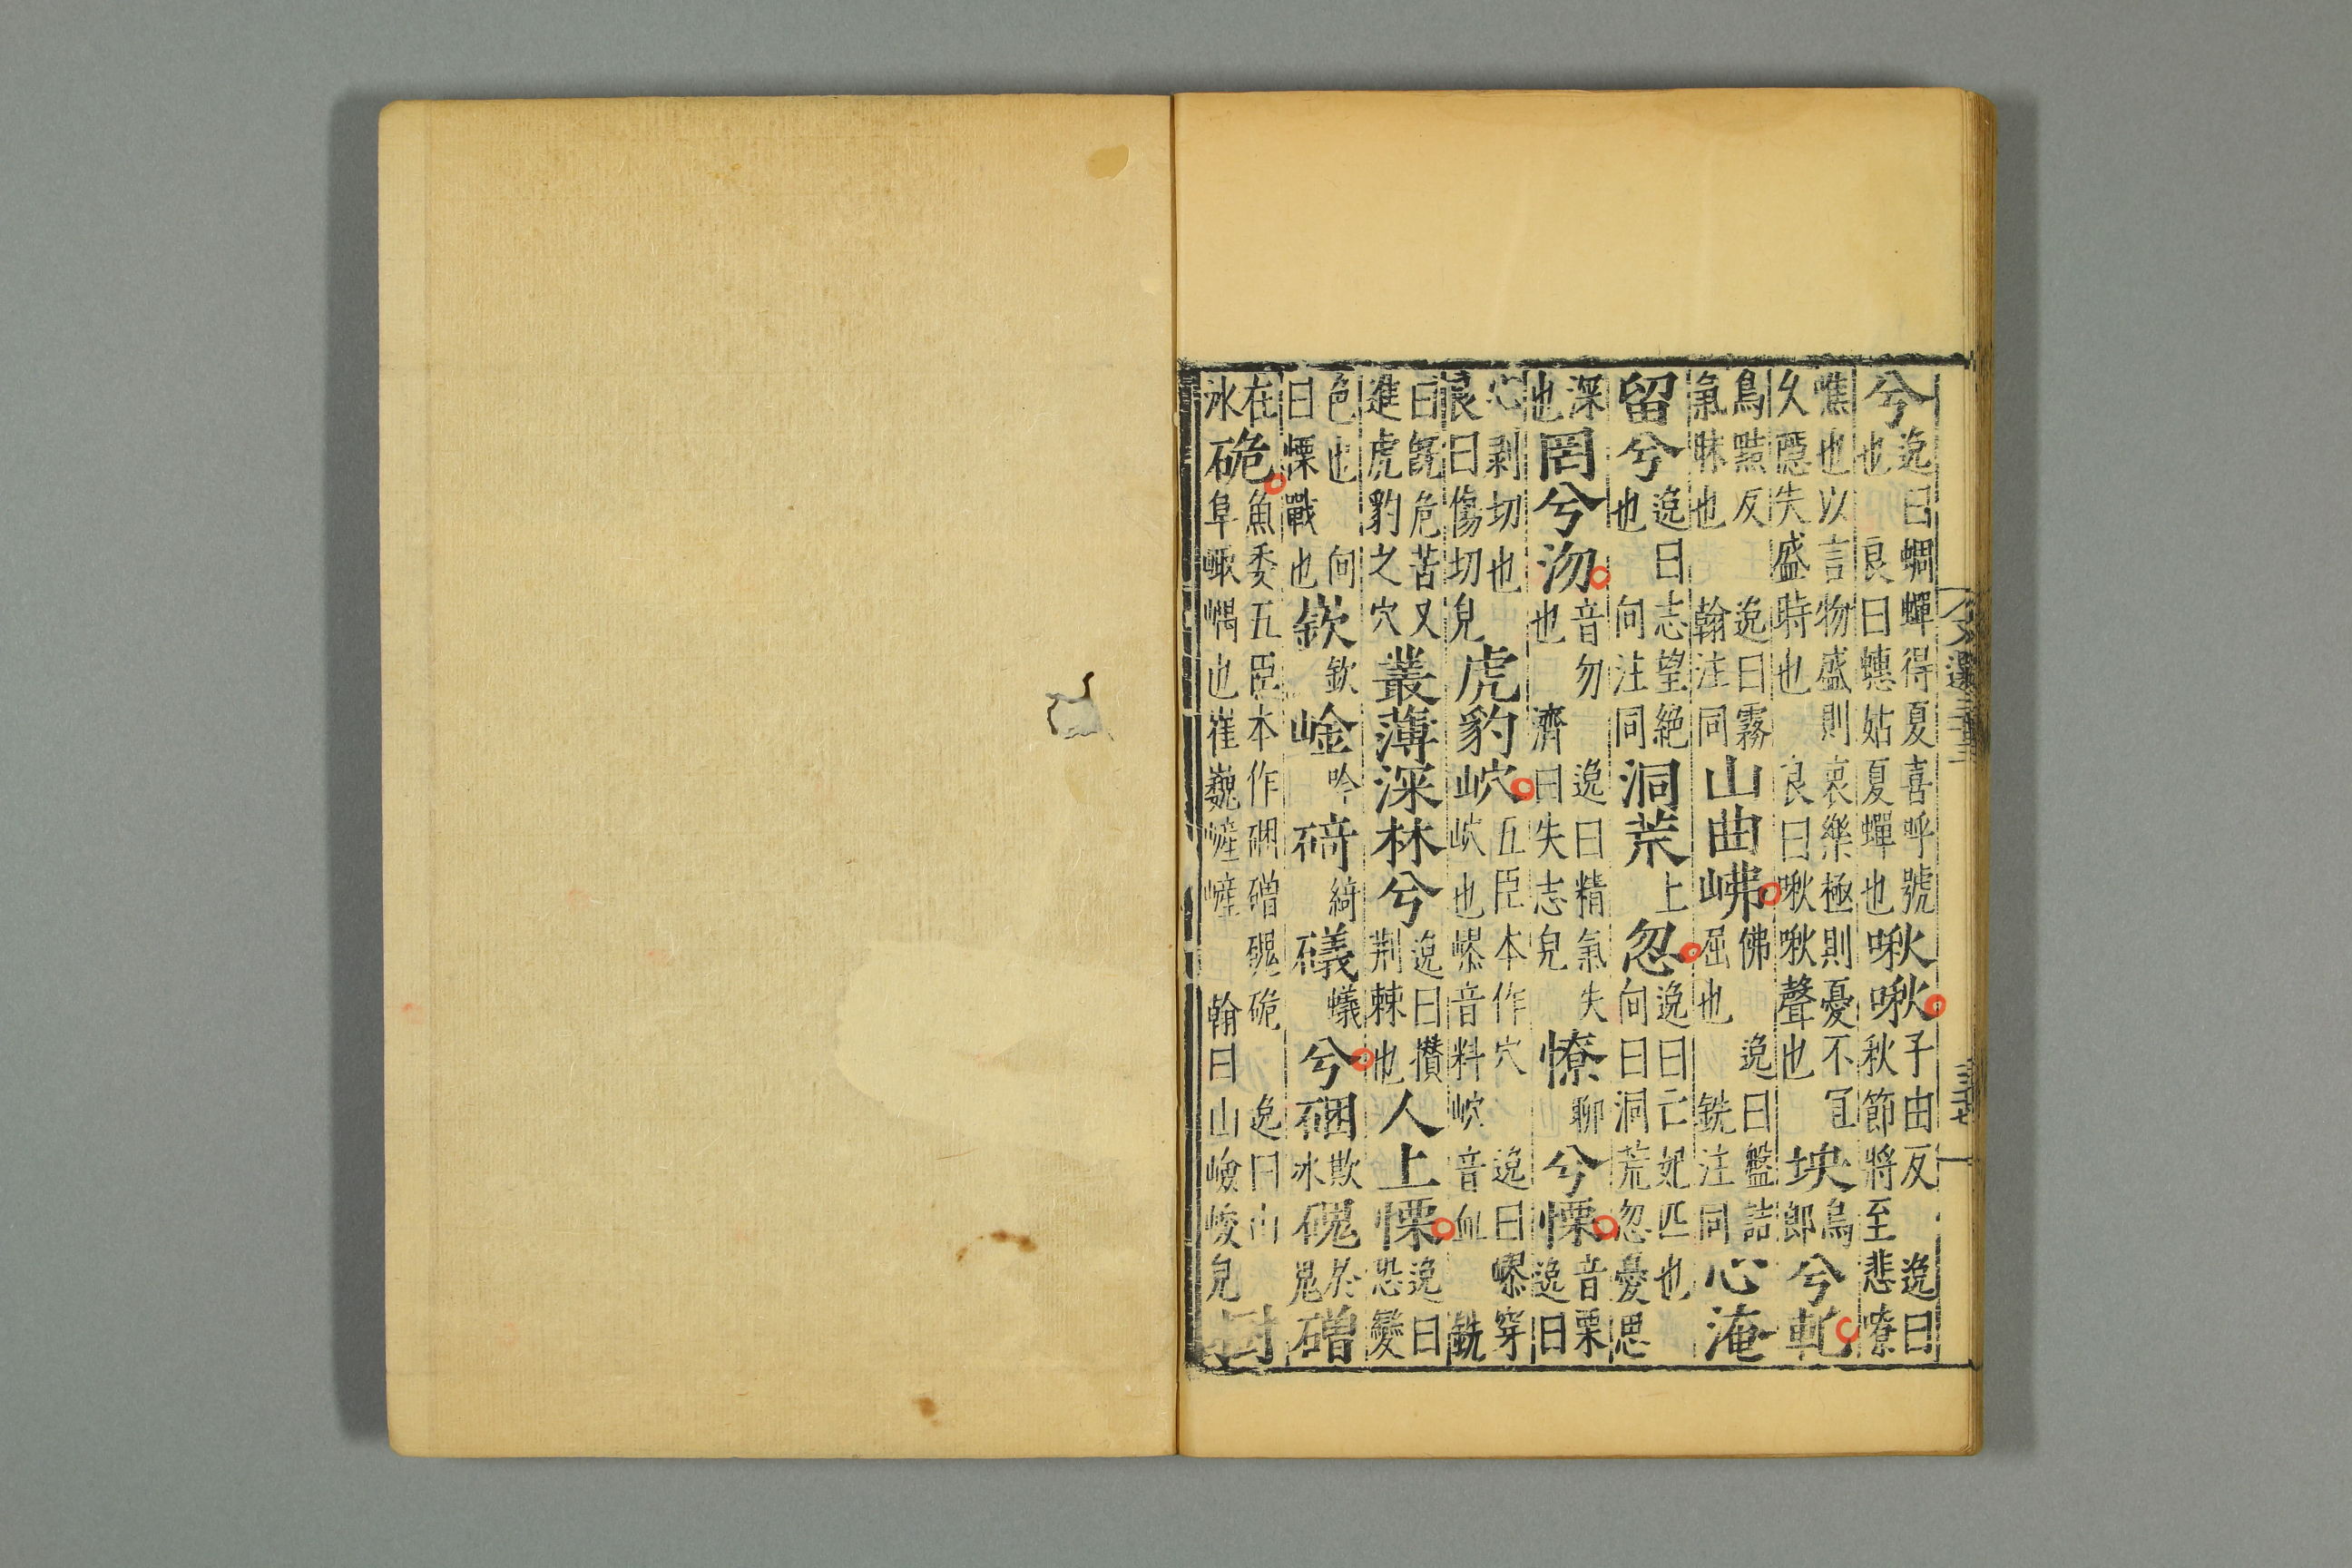 兮逸曰蜩蟬得夏喜呼號也良曰蟪蛄夏蟬也啾啾子由反逸曰秋節將至悲嘹
噍也以言物盛則哀樂極則憂不宜久隱失盛時也良曰啾啾聲也坱烏郎兮軋
烏黠反逸曰霧氣昧也翰注同山曲岪佛逸曰盤詰屈也銑注同心淹
留兮逸曰志望絕也向注同洞荒上忽逸曰亡妃匹也向曰洞荒忽憂思
深也罔兮沕音勿逸曰精氣失也濟曰失志皃憭聊兮慄音栗逸曰
心剥切也良曰傷切皃虎豹岤五臣本作穴逸曰嵺穿岤也嵺音料岤音血銑
曰旣危苦又進虎豹之穴叢薄深林兮逸曰攢荆棘也人上慄逸曰恐變
色也向曰慄戰也嶔欽崯吟碕綺礒蟻兮硱欺冰磈於鬼磳
在冰硊魚委五臣本作硱磳磈硊逸曰山阜嵎也崔巍嶘嶘翰曰山嶮峻皃樹
文選三十三
三十七